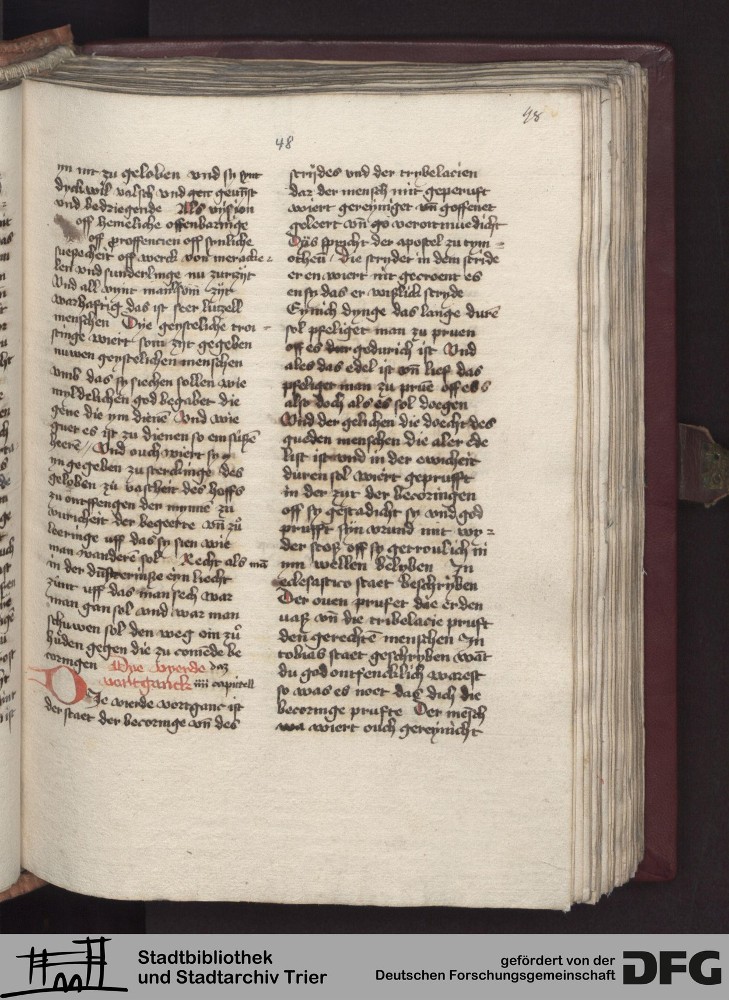 48
48
ym nit zu geloben vnd sy synt
dyckwil valsch vnd gen geunst
vnd bedriegende Als vysion
off hemeliche offenbaringe
off proffencien off sinliche
suesscheit off werck von meracke-
len vnd sunderlinge nu zurzyt
Vnd all vmnt man som zyt
warhafftig das ist seer lutzell
menschen Dye geysteliche troi-
stinge wiert som zyt gegeben
nuwen geystelichen menschen
vmb das sy siechen sollen wie
myldelichen god begaber die
gene die ym dienē Vnd wie
guet es ist zu dienen so ein sußē
heerē Vnd ouch wiert sy
yn gegeben zu sterckinge des
geloben zu vastheit des hoffs
zu ontffengen der mynne zu
vuricheit der begerte vn̄ zů
leeringe uff das sy sien wie
man wanderē sol Recht als mā
in der dusternisse eyn liecht
zunt uff das man sech war
man gan sol vnd war man
schuwen sol den weg om zů
hůden gegen die zu comēde be
coringen Dye vyerde daz
vortganck iiii capittell
Die vierde vortganc ist
der staet der becoringe vn̄ des
strijdes vnd der trybelacien
dar der mensch mit gepruft
wiert gereyniger vn̄ goffenet
geleert vn̄ go verotmuedicht
Das spricht der apostel zu tym-
otheū Die stryder in dem stride
er en wiert nit gecroent es
en sy das er wißlich stryde
Eynich dynge das lange durē
sol pfeliget man zu pruen
off es dar gedurich ist Vnd
ales das edel ist vn̄ lief das
pfeliget man zu pruē off es s
also doch als es sol doegen
Vnd der gelichen die doecht des
gueden menschen die aler ede
list ist vnd in der ewicheit
duren sol wiert geprufft
in der zyt der becoringen
off sy gestadicht sy vnd god
prufft syn vrund mit wy-
der stoß off sy getroulich in
ym wellen belyben In
eclesastico staet beschryben
Der ouen prufet die erden
vaß vn̄ die tribelacie pruft
den gerechtē menschen In
tobias staet geschryben want
du god ontfencklich warest
so was es noet daß dich die
becoringe prufte Der mēsch
wiert ouch gereynicht
Stadtbibliothek
und Stadtarchiv Trier
gefördert von der
Deutschen Forschungsgemeinschaft
DFG